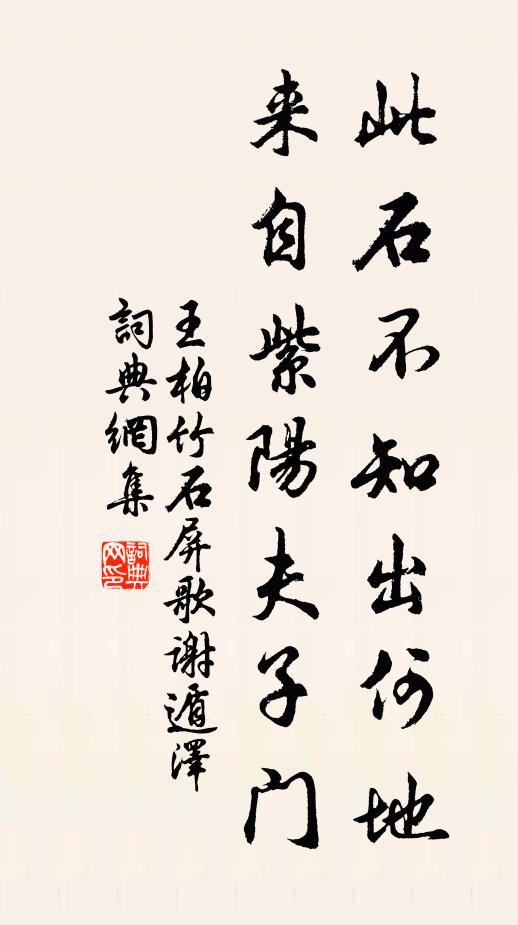 此石不知出何地
来自紫陽夫子门
王柏竹石屏歌谢遁澤
詞典網集
詞典网印